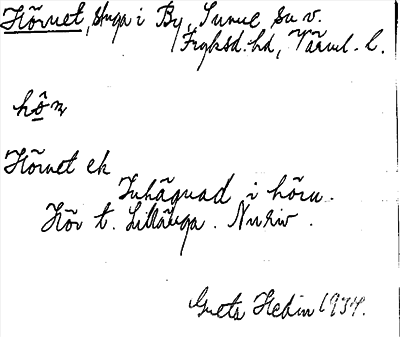 Hörnet, stuga i By, Sunne sn v.
Fryksd. hd, Värml. l.
hö̂ṇ
Hörnet ek
Inhägnad i hörn.
Hör t. Lillänga.
Greta Hedin 1934.